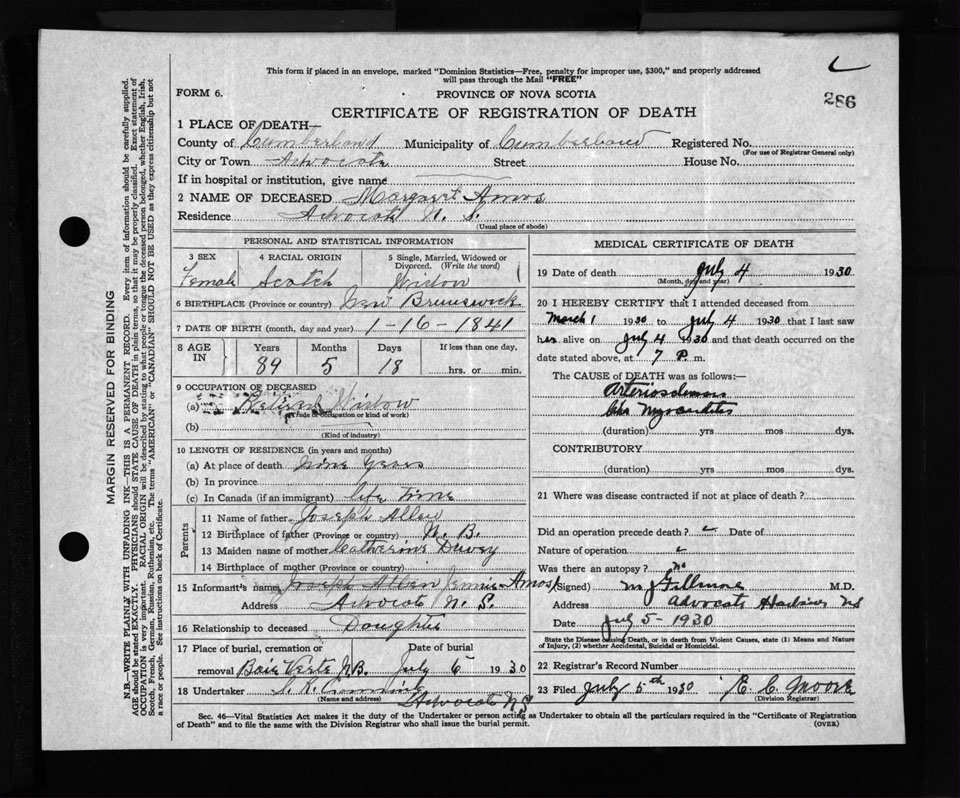 This form if placed in an envelope, marked "Dominion Statistics—Free, penalty for improper use, $300," and properly addressed
will pass through the Mail "FREE"
FORM 6.
PROVINCE OF NOVA SCOTIA
286
CERTIFICATE OF REGISTRATION OF DEATH
1 PLACE OF DEATH—
County of Cumberland Municipality of Cumberland Registered No.
(For use of Registrar General only)
City or Town Advocate Street House No.
If in hospital or institution, give name
2 NAME OF DECEASED Margaret Amos
Residence Advocate N. S.
(Usual place of abode)
PERSONAL AND STATISTICAL INFORMATION
3 SEX 4 RACIAL ORIGIN 5 Single, Married, Widowed or
Divorced. (Write the word)
Female Scotch Widow
6 BIRTHPLACE (Province or country) New Brunswick
7 DATE OF BIRTH (month, day and year) 1-16-1841
8 AGE IN Years Months Days If less than one day.
89 5 18 hrs. or min.
9 OCCUPATION OF DECEASED
(a) Retired Widow
(Trade or occupation or kind of work)
(b)
(Kind of industry)
10 LENGTH OF RESIDENCE (in years and months)
(a) At place of death nine years
(b) In province
(c) In Canada (if an immigrant) life time
Parents
11 Name of father Joseph Allen
12 Birthplace of father (Province or country) N. B.
13 Maiden name of mother Catherine Dewey
14 Birthplace of mother (Province or country)
15 Informant's name Joseph Allen Jennie Amos
Address Advocate N. S.
16 Relationship to deceased Daughter
17 Place of burial, cremation or Date of burial
removal Baie Verte N.B. July 6 1930
18 Undertaker
(Name and address)
Advocate N S
MEDICAL CERTIFICATE OF DEATH
19 Date of death July 4 1930
(Month, day and year)
20 I HEREBY CERTIFY that I attended deceased from
March 1 1930 to July 4 1930 that I last saw
her alive on July 4 1930 and that death occurred on the
date stated above, at 7 P. m.
The CAUSE OF DEATH was as follows:—
Arteriosclerosis
Chr Myocarditis
(duration) yrs mos dys.
CONTRIBUTORY
(duration) yrs mos dys.
21 Where was disease contracted if not at place of death?
Did an operation precede death? Date of
Nature of operation
Was there an autopsy? no
(Signed) M J Gillmore M.D.
Address Advocate Harbour NS
Date July 5-1930
State the Disease causing Death, or in death from Violent Causes, state (1) Means and Nature
of Injury, (2) whether Accidental, Suicidal or Homicidal.
22 Registrar's Record Number
23 Filed July 5th 1930 E. C. Moore
(Division Registrar)
Sec. 46—Vital Statistics Act makes it the duty of the Undertaker or person acting as Undertaker to obtain all the particulars required in the "Certificate of Registration
of Death" and to file the same with the Division Registrar who shall issue the burial permit.
(OVER)
MARGIN RESERVED FOR BINDING
N.B.—WRITE PLAINLY WITH UNFADING INK—THIS IS A PERMANENT RECORD. Every item of information should be carefully supplied.
AGE should be stated EXACTLY. PHYSICIANS should STATE CAUSE OF DEATH in plain terms, so that it may be properly classified. Exact statement of
OCCUPATION is very important. RACIAL ORIGIN will be described by stating to what people or tongue the deceased person belonged, whether English, Irish,
Scotch, French, German, Russian, Ruthenian, etc. The terms "AMERICAN" or "CANADIAN" SHOULD NOT BE USED as they express citizenship but not
a race or people. See instructions on back of Certificate.